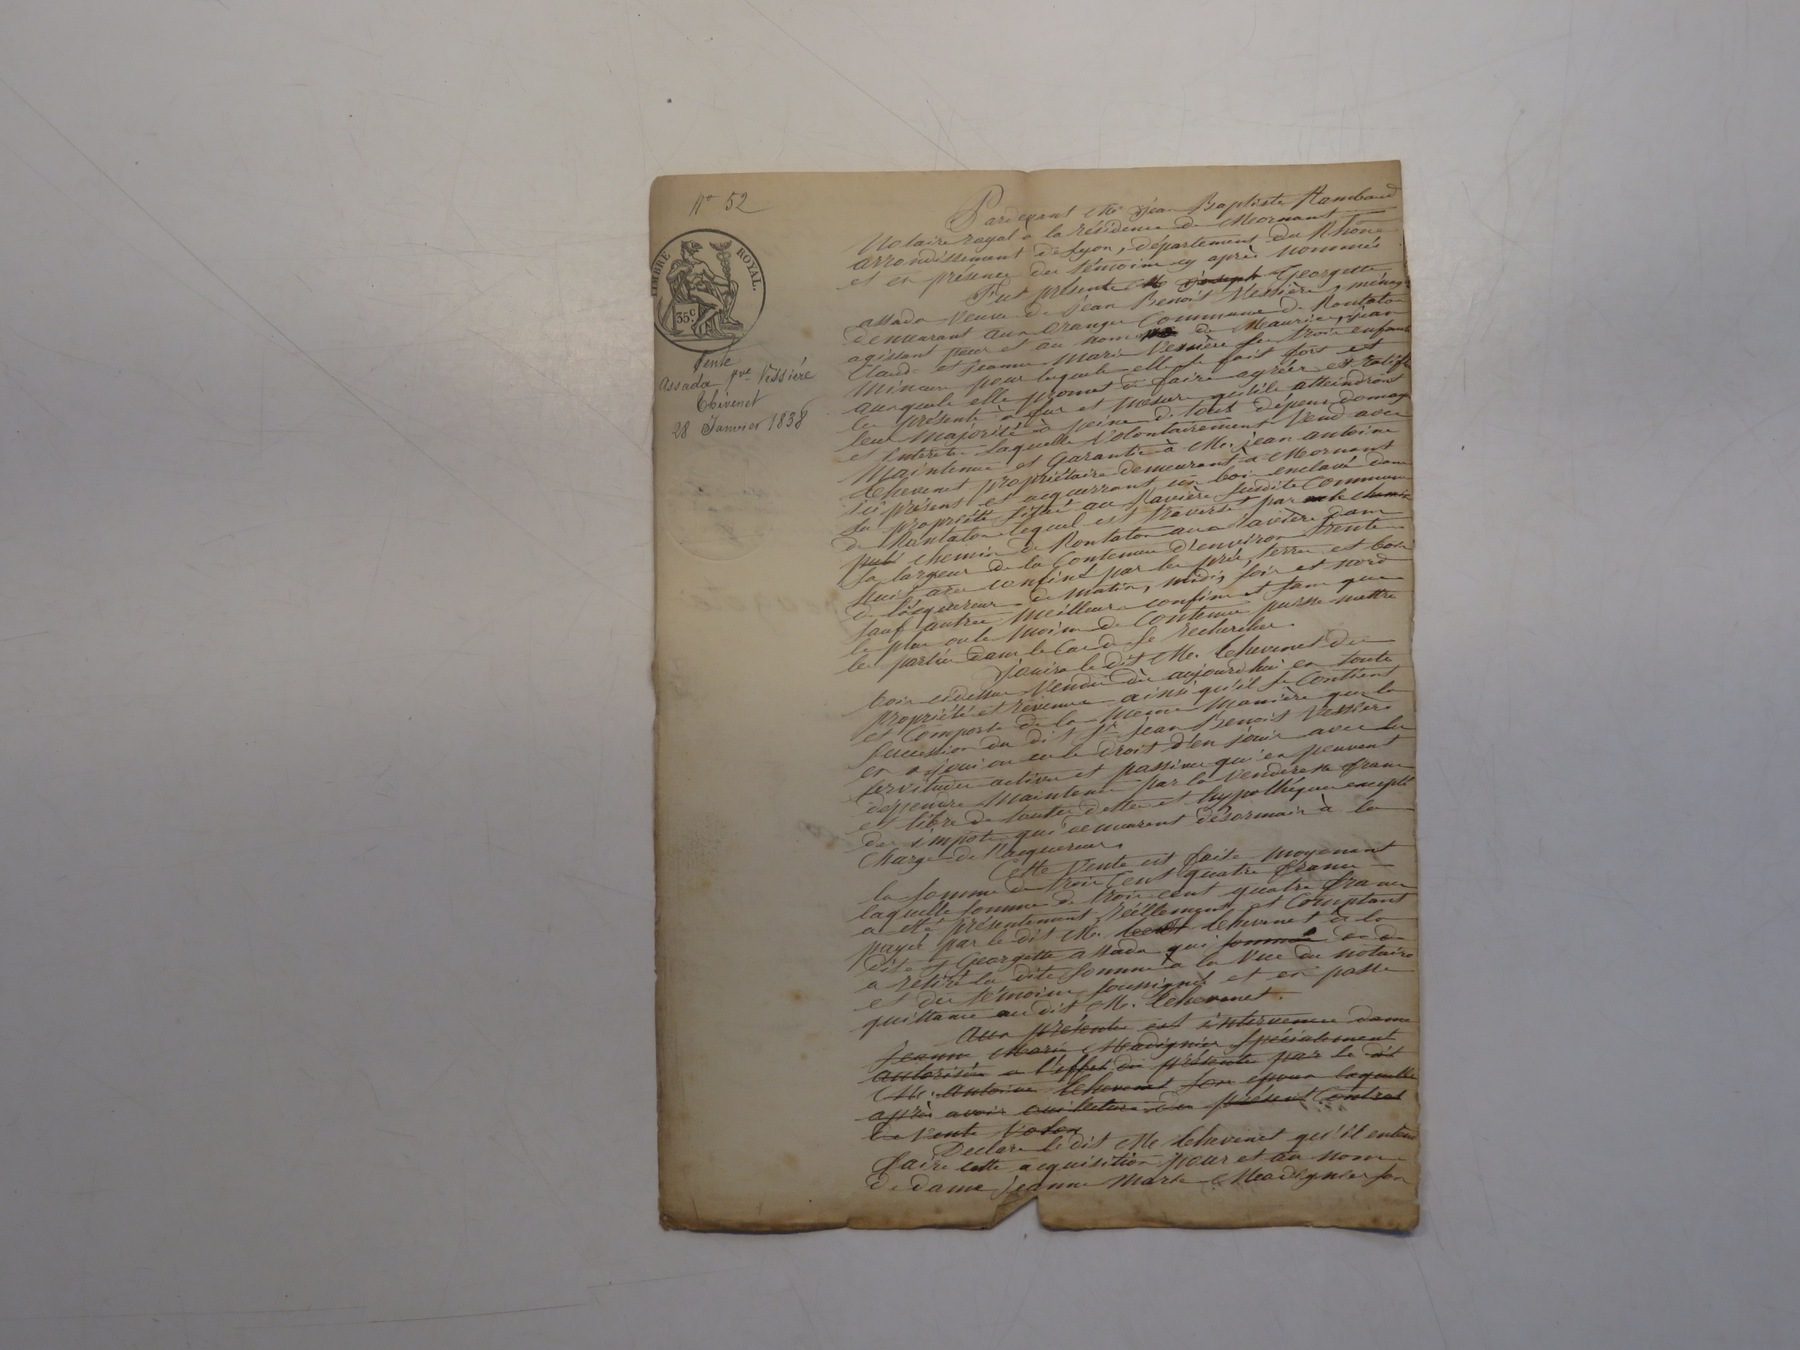 N° 52
TIMBRE ROYAL.
35 c
Vente
Assada vve Vessière
Thévenet
28 Janvier 1838
Pardevant Me Jean Baptiste Rambaud
Notaire royal à la résidence de Mornant
arrondissement de Lyon, département du Rhône
et en présence des témoins cy après nommés
Fut présente Georgette
assada veuve de Jean Benoit Vessière, ménagère
demeurant aux Granges Commune de Rontalon
agissant pour et au nom de Maurice, Jean
Claude et Jeanne Marie Vessière ses trois enfants
Mineurs pour lesquels elle se fait fort et
auxquels elle promet de faire agréer et ratifier
les présentes à fur et mesure qu'ils atteindront
leur Majorité à peine de tous dépens domages
et interets. Laquelle Volontairement Vend avec
Maintenue et Garantie à Mr. jean antoine
thevenet propriétaire demeurant à Mornant
ici présent et acquerrant un bois enclavé dans
sa propriété situé au Ravière susdite Commune
de Rontalon lequel est traversé par le chemin
chemin de Rontalon aux Ravière dans
sa largeur de la Contenue d'environ trente
huit ares confiné par les prés, terre et bois
de l'acquéreur de matin, midi, soir et nord
sauf autres meilleurs confins et sans que
le plus ou le moins de Contenue puisse mettre
les parties dans le Cas de se rechercher.
Jouira le dit Mr. thevenet du
bois cidessus Vendu dès aujourdhui en toute
propriété et revenus ainsi qu'il se Contient
et Comporte de la même Manière que la
succession du dit Sr. Jean Benoit Vessière
en a joui ou eu le droit d'en jouir avec les
servitudes actives et passives qu'en peuvent
dépendre Maintenu par la Venderesse franc
et libre de toutes dettes et hypothèques excepté
des impots qui demeurent désormais à la
Charge de l'acquereur.
Cette Vente est faite moyenant
la somme de trois Cent quatre francs
laquelle somme de trois cent quatre francs
a été présentement, réellement et Comptant
payée par le dit Mr. thevenet à la
dite Georgette assada qui
a retiré la dite somme à la Vue du notaire
et des témoins soussignés et en passe
quittance au dit Mr. thevenet.
Aux présentes est intervenue dame
Jeanne Marie Madignier Spécialement
autorisée a l'effet des présentes par le dit
Mr. Antoine thevenet son époux laquelle
après avoir oui lecture du présent Contrat
de Vente
Declare le dit Mr. thevenet qu'il entend
faire cette acquisition pour et au nom
de dame jeanne Marie Madignier son